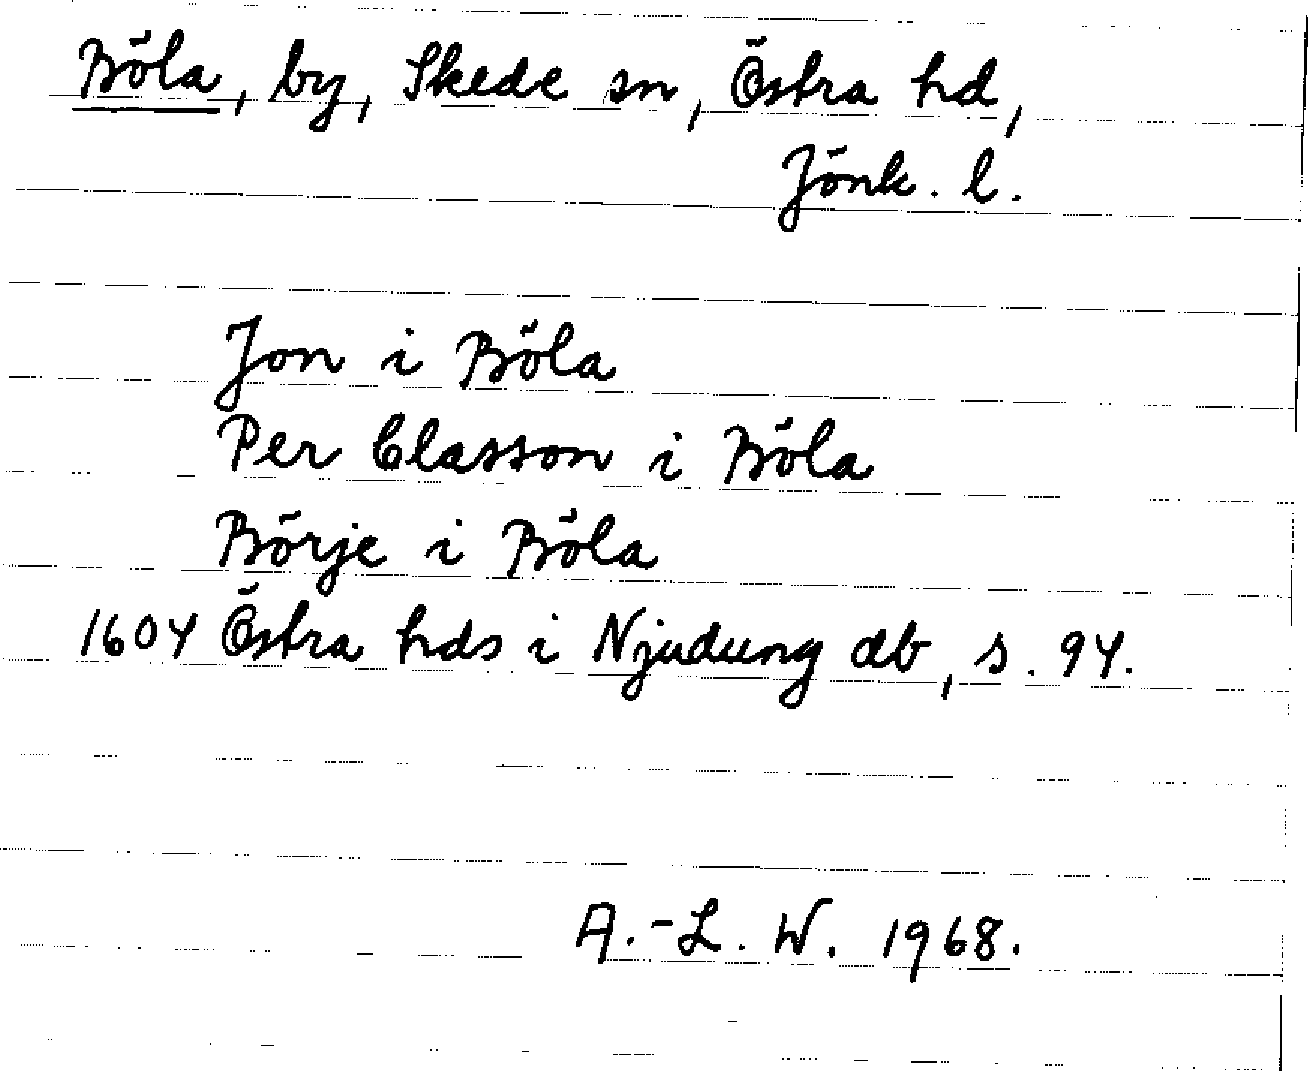 Böla, by, Skede sn, Östra hd,
Jönk. l.
Jon i Böla
Per Classon i Böla
Börje i Böla
1604 Östra hds i Njudung db, s. 94.
A.-L. W. 1968.